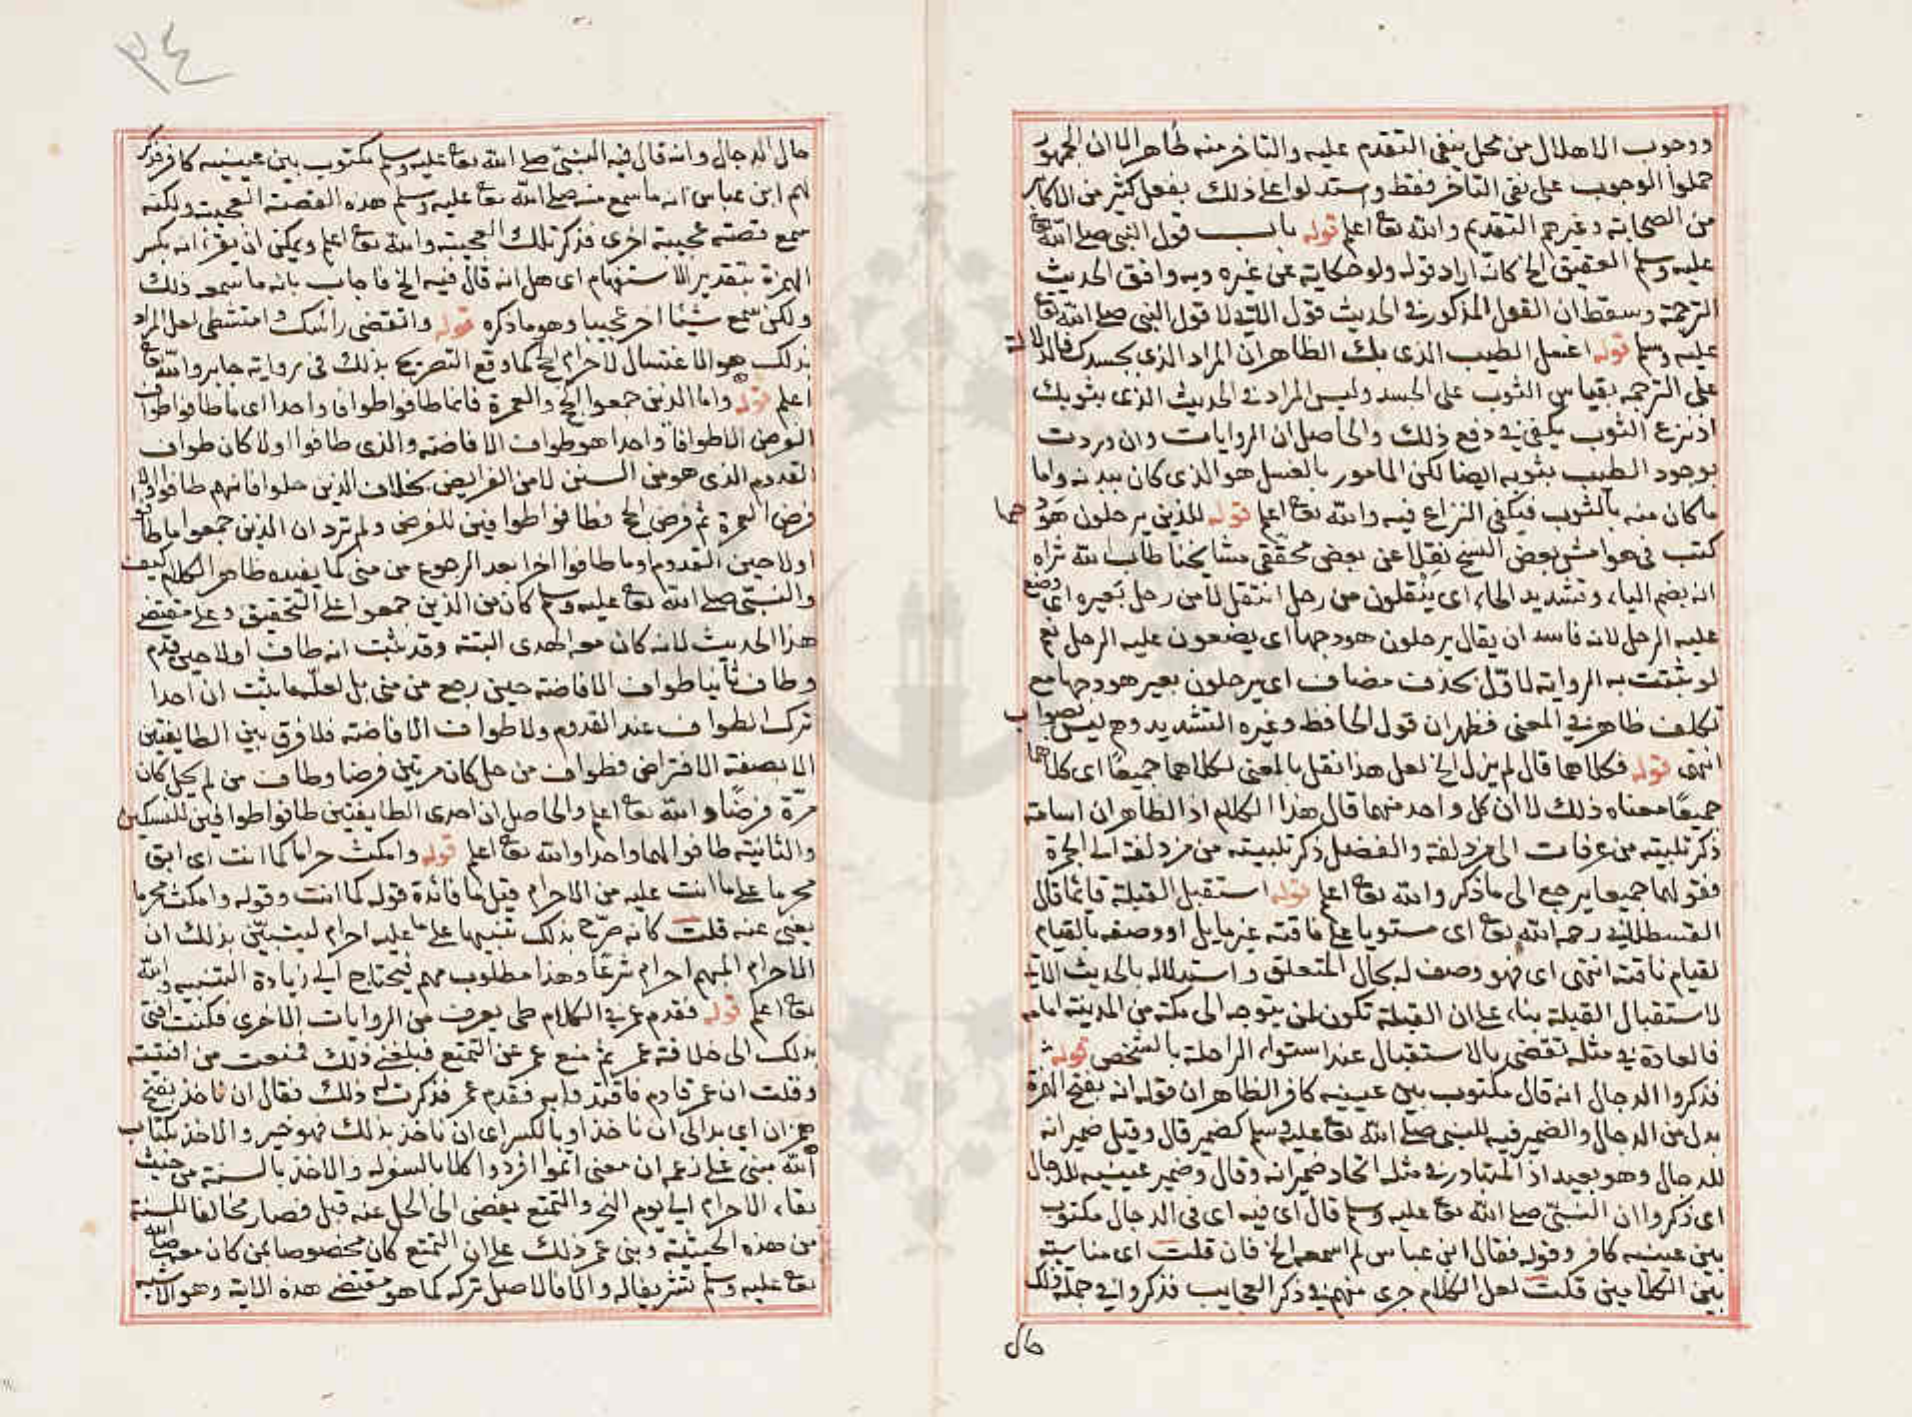 ووجوب الاهلال من محل ينفى التقدم عليه والتاخر منه ظاهر الا ان الجمهور
حملوا الوجوب على نفى التاخر فقط واستدلوا على ذلك بفعل كثير من الاكابر
من الصحابة وغيرهم التقديم والله تعا اعلم قوله باب قول النبى صلى الله تعا
عليه وسلم العقيق الخ كانه اراد قوله ولو حكاية عن غيره وبه وافق الحديث
الترجمة وسقط ان القول المذكور فى الحديث قول الآتى لا قول النبى صلى الله تعا
عليه وسلم قوله اغسل الطيب الذى بك الظاهر ان المراد الذى بجسدك فالدلالة
على الترجمة بقياس الثوب على الجسد وليس المراد فى الحديث الذى بثوبك
اذ نزع الثوب يكفى فى دفع ذلك والحاصل ان الروايات وان وردت
بوجود الطيب بثوبه ايضا لكن المامور بالغسل هو الذى كان ببدنه واما
ما كان منه بالثوب فيكفى النزاع فيه والله تعا اعلم قوله للذين يرحلون هودجها
كتب فى هوامش بعض النسخ نقلا عن بعض محققى مشايخنا طاب الله ثراه
انه بضم الياء وتشديد الحاء اى ينقلون من رحل انتقل لا من رحل بعيره اى وضع
عليه الرحل لانه فاسد ان يقال يرحلون هودجها اى يضعون عليه الرحل نعم
لو ثبتت به الرواية لاوّل بحذف مضاف اى يرحلون بعير هودجها مع
تكلف ظاهر فى المعنى فظهر ان قول الحافظ وغيره التشديد وهم ليس بصواب
انتهى قوله فكلاهما قال لم يزل الخ لعل هذا نقل بالمعنى لكلاهما جميعًا اى كلاهما
جميعًا معناه ذلك لا ان كل واحد منهما قال هذا الكلام اذ الظاهر ان اسامة
ذكر تلبيته من عرفات الى مزدلفة والفضل ذكر تلبيته من مزدلفة الى الجمرة
فقولهما جميعا يرجع الى ما ذكر والله تعا اعلم قوله استقبل القبلة قائما قال
القسطلانى رحمه الله تعا اى مستويا على ناقته غير مايل او وصفه بالقيام
لقيام ناقته انتهى اى فهو وصف له بحال المتعلق واستدلاله بالحديث الآتى
لاستقبال القبلة بناء على ان القبلة تكون لمن يتوجه الى مكة من المدينة امامه
فالعادة فى مثله تقضى بالاستقبال عند استواء الراحلة بالشخص قوله
فذكروا الدجال انه قال مكتوب بين عينيه كافر الظاهر ان قوله انه بفتح الهمزة
بدل من الدجال والضمير فيه للنبى صلى الله تعا عليه وسلم كضمير قال وقيل ضمير انه
للدجال وهو بعيد اذ المتبادر فى مثله اتحاد ضمير انه وقال وضمير عينيه للدجال
اى ذكروا ان النبىّ صلى الله تعا عليه وسلم قال اى فيه اى فى الدجال مكتوب
بين عينيه كافر وقوله فقال ابن عباس لم اسمعه الخ فان قلت اى مناسبة
بين الكلامين قلت لعل الكلام جرى منهم فى ذكر العجايب فذكروا فى جملة ذلك
حال
٣٤
حال الدجال وانه قال فيه النبىّ صلى الله تعا عليه وسلم مكتوب بين عينيه كافر فذكر
لهم ابن عباس انه ما سمع منه صلى الله تعا عليه وسلم هذه القصة العجيبة ولكنه
سمع قصة عجيبة اخرى فذكر تلك العجيبة والله تعا اعلم ويمكن ان يقرأ انه بكسر
الهمزة بتقدير الاستفهام اى هل انه قال فيه الخ فاجاب بانه ما سمع ذلك
ولكن سمع شيئا اخر عجيبا وهو ما ذكره قوله وانقضى راسك وامتشطى لعل المراد
بذلك هو الاغتسال لاحرام الحج كما وقع التصريح بذلك فى رواية جابر والله تعا
اعلم قوله واما الذين جمعوا الحج والعمرة فانما طافوا طوافا واحدا اى ما طافوا طواف
الفرض الا طوافا واحدا هو طواف الافاضة والذى طافوا اولا كان طواف
القدوم الذى هو من السنن لا من الفرايض بخلاف الذين حلوا فانهم طافوا اولا
فرض العمرة ثم فرض الحج فطافوا طوافين للفرض ولم ترد ان الذين جمعوا ما طافوا
اولا حين القدوم او ما طافوا اخرا بعد الرجوع من منى كما يفيده ظاهر الكلام كيف
والنبىّ صلى الله تعا عليه وسلم كان من الذين جمعوا على التحقيق وعلى مقتضى
هذا الحديث لانه كان معه الهدى البتة وقد ثبت انه طاف اولا حين قدم
وطاف ثانيا طواف الافاضة حين رجع من منى بل لعلّه ما ثبت ان احدا
ترك الطواف عند القدوم ولا طواف الافاضة فلا فرق بين الطايفتين
الا بصفة الافتراض فطواف من حل كان مرتين فرضا وطاف من لم يحل كان
مرّة فرضًا والله تعا اعلم والحاصل ان احدى الطايفتين طافوا طوافين للنسكين
والثانية طافوا لهما واحدا والله تعا اعلم قوله وامكث حراما كما انت اى ابق
محرما على ما انت عليه من الاحرام قيل ما فائدة قوله كما انت وقوله وامكث محرما
يغنى عنه قلت كانه صرّح بذلك تنبيها على ما عليه احرام ليتبيّن بذلك ان
الاحرام المبهم احرام شرعًا وهذا مطلوب مهم يحتاج الى زيادة التنبيه والله
تعا اعلم قوله فقدم عمر فى الكلام طى يعرف من الروايات الاخرى فكنت افتى
بذلك الى خلافة عمر ثم منع عمر عن التمتع فبلغنى ذلك فمنعت من افتيته
وقلت ان عمر قادم فاقتدوا به فقدم عمر فذكرت له ذلك فقال ان ناخذ بفتح
همزة ان اى بدا لى ان ناخذ او بالكسر اى ان ناخذ بذلك فهو خير والاخذ بكتاب
الله مبنى على زعمه ان معنى اتموا افردوا كلا بالسفر له والاخذ بالسنة من حيث
بقاء الاحرام الى يوم النحر والتمتع يفضى الى الحل عنه قبل فصار مخالفا للسنة
من هذه الحيثية وبنى عمر ذلك على ان التمتع كان مخصوصا بمن كان معه صلى الله
تعا عليه وسلم تشريفا له والا فالاصل تركه كما هو مقتضى هذه الاية وهو الاشبه